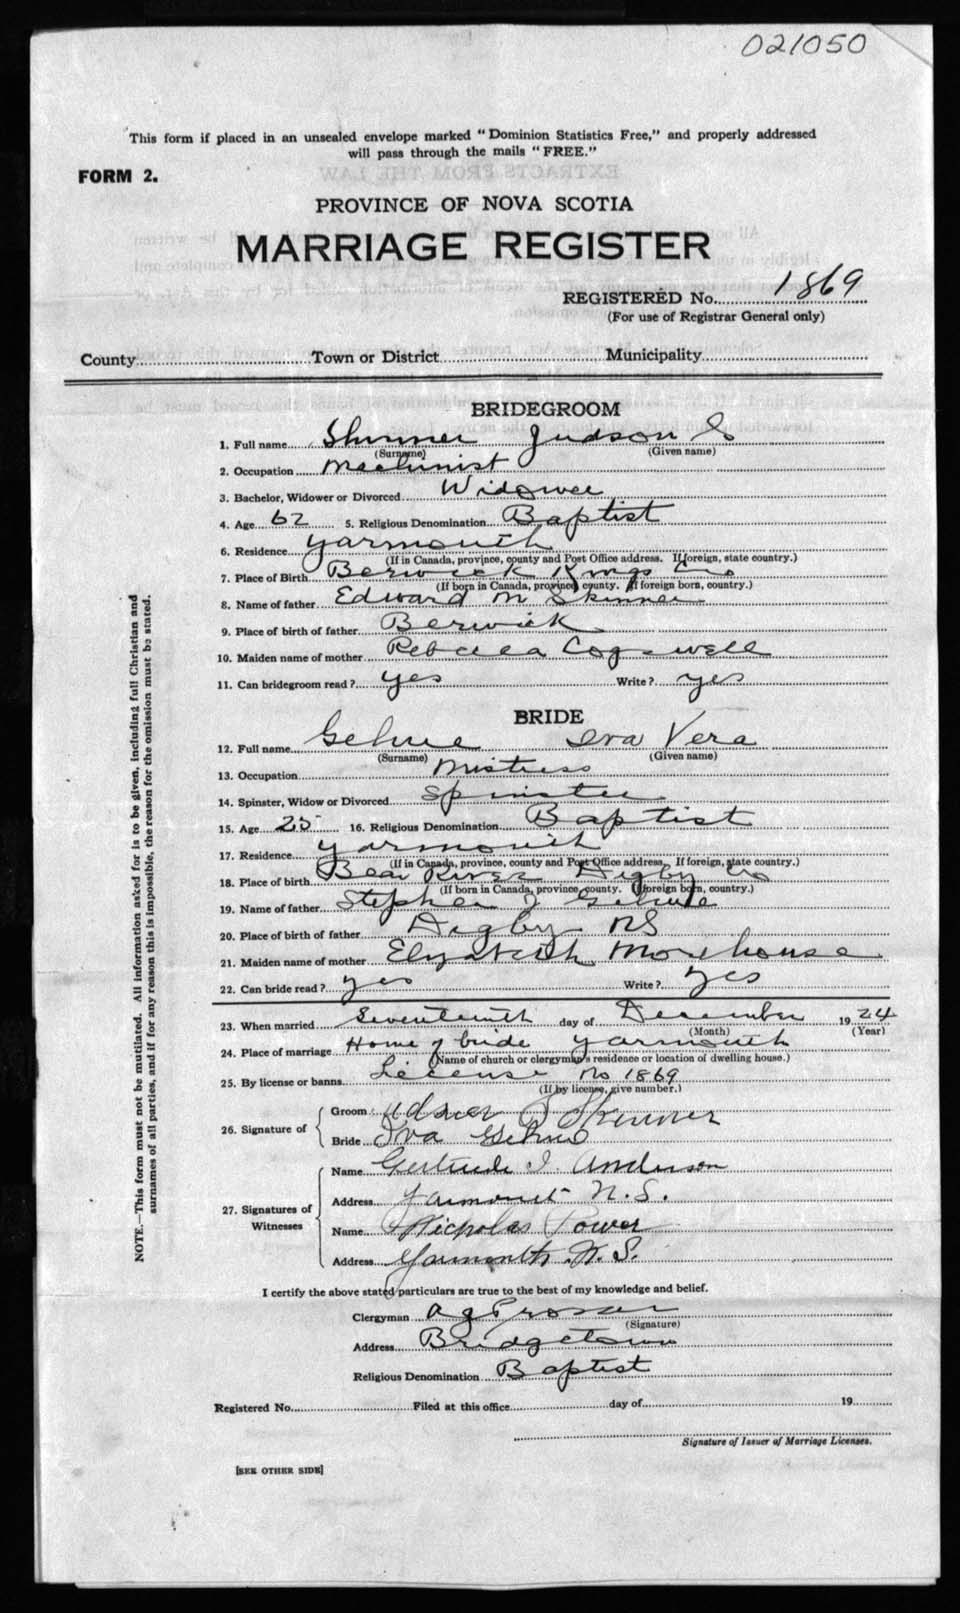 021050
This form if placed in an unsealed envelope marked "Dominion Statistics Free," and properly addressed
will pass through the mails "FREE."
FORM 2.
PROVINCE OF NOVA SCOTIA
MARRIAGE REGISTER
REGISTERED No. 1869
(For use of Registrar General only)
County Town or District Municipality
BRIDEGROOM
1. Full name Skinner Judson
(Surname) (Given name)
2. Occupation Machinist
3. Bachelor, Widower or Divorced Widower
4. Age 62 5. Religious Denomination Baptist
6. Residence Yarmouth
(If in Canada, province, county and Post Office address. If foreign, state country.)
7. Place of Birth Berwick Kings Co
(If born in Canada, province, county. If foreign born, country.)
8. Name of father Edward M Skinner
9. Place of birth of father Berwick
10. Maiden name of mother Rebecca Cogswell
11. Can bridegroom read? yes Write? yes
BRIDE
12. Full name Gehue Iva Vera
(Surname) (Given name)
13. Occupation Mistress
14. Spinster, Widow or Divorced Spinster
15. Age 25 16. Religious Denomination Baptist
17. Residence Yarmouth
(If in Canada, province, county and Post Office address. If foreign, state country.)
18. Place of birth Bear River Digby Co
(If born in Canada, province, county. If foreign born, country.)
19. Name of father Stephen J Gehue
20. Place of birth of father Digby NS
21. Maiden name of mother Elizabeth Morehouse
22. Can bride read? yes Write? yes
23. When married Seventeenth day of December 1924
(Month) (Year)
24. Place of marriage Home of bride Yarmouth
(Name of church or clergyman's residence or location of dwelling house.)
25. By license or banns License No 1869
(If by license, give number.)
26. Signature of
Groom Skinner
Bride Iva Gehue
27. Signatures of Witnesses
Name Gertrude I. Anderson
Address Yarmouth N.S.
Name Nicholas Power
Address Yarmouth N.S.
I certify the above stated particulars are true to the best of my knowledge and belief.
Clergyman A G Prosser
(Signature)
Address Bridgetown
Religious Denomination Baptist
Registered No. Filed at this office day of 19
Signature of Issuer of Marriage Licenses.
[SEE OTHER SIDE]
NOTE.—This form must not be mutilated. All information asked for is to be given, including full Christian and
surnames of all parties, and if for any reason this is impossible, the reason for the omission must be stated.